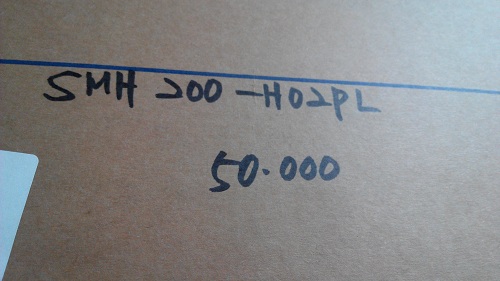 SMH 200-H02PL
50.000